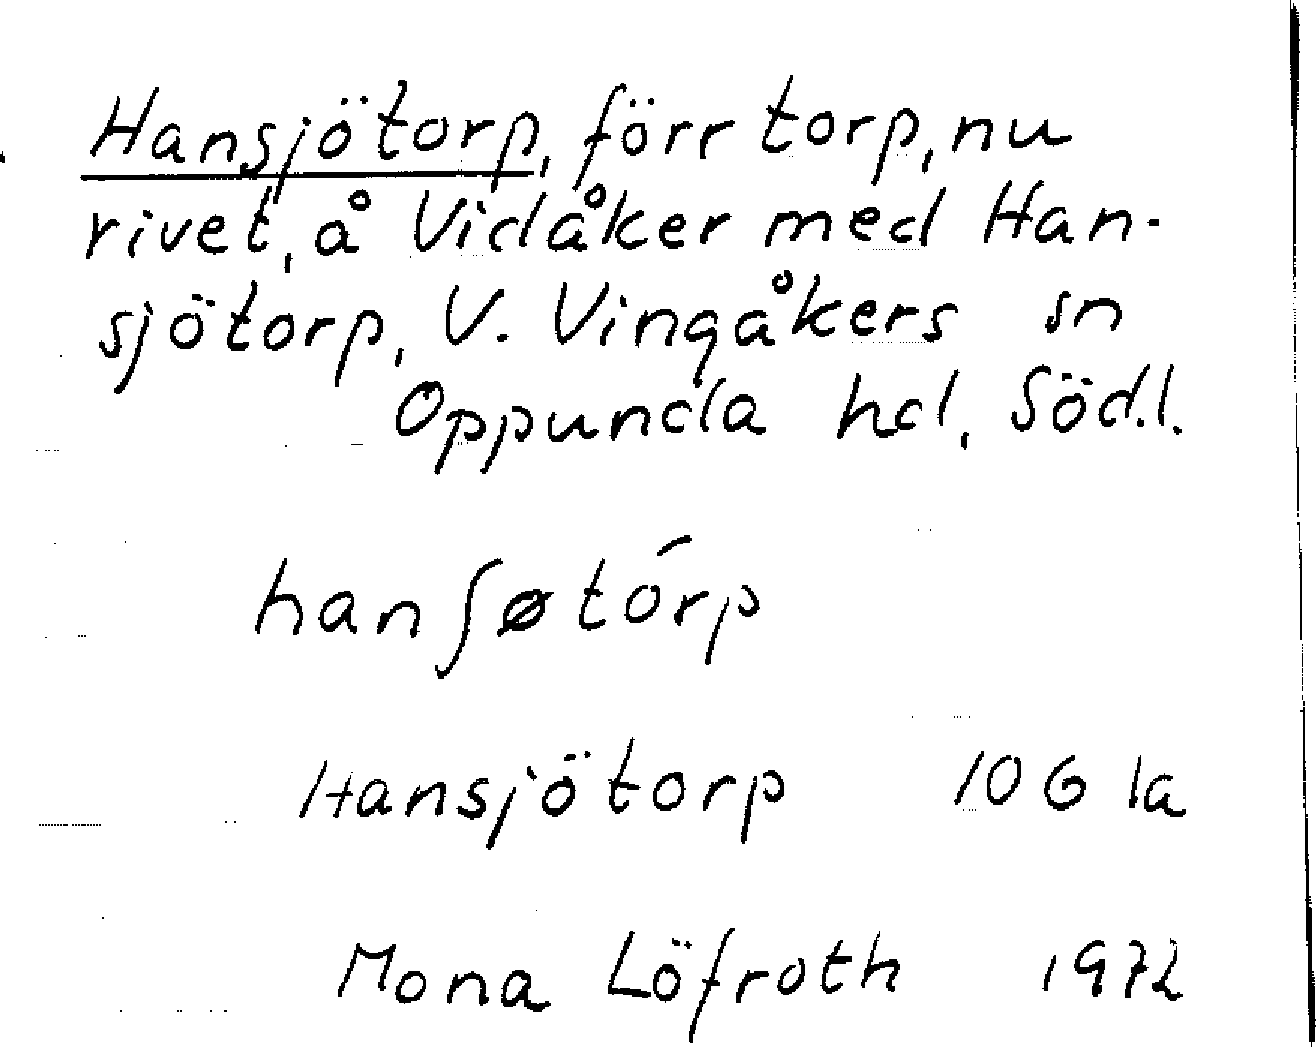 Hansjötorp, förr torp, nu
rivet, å Vidåker med Han-
sjötorp, V. Vingåkers sn
Oppunda hd, Söd.l.
hanʃøtórp
Hansjötorp 10G 1a
Mona Löfroth 1972